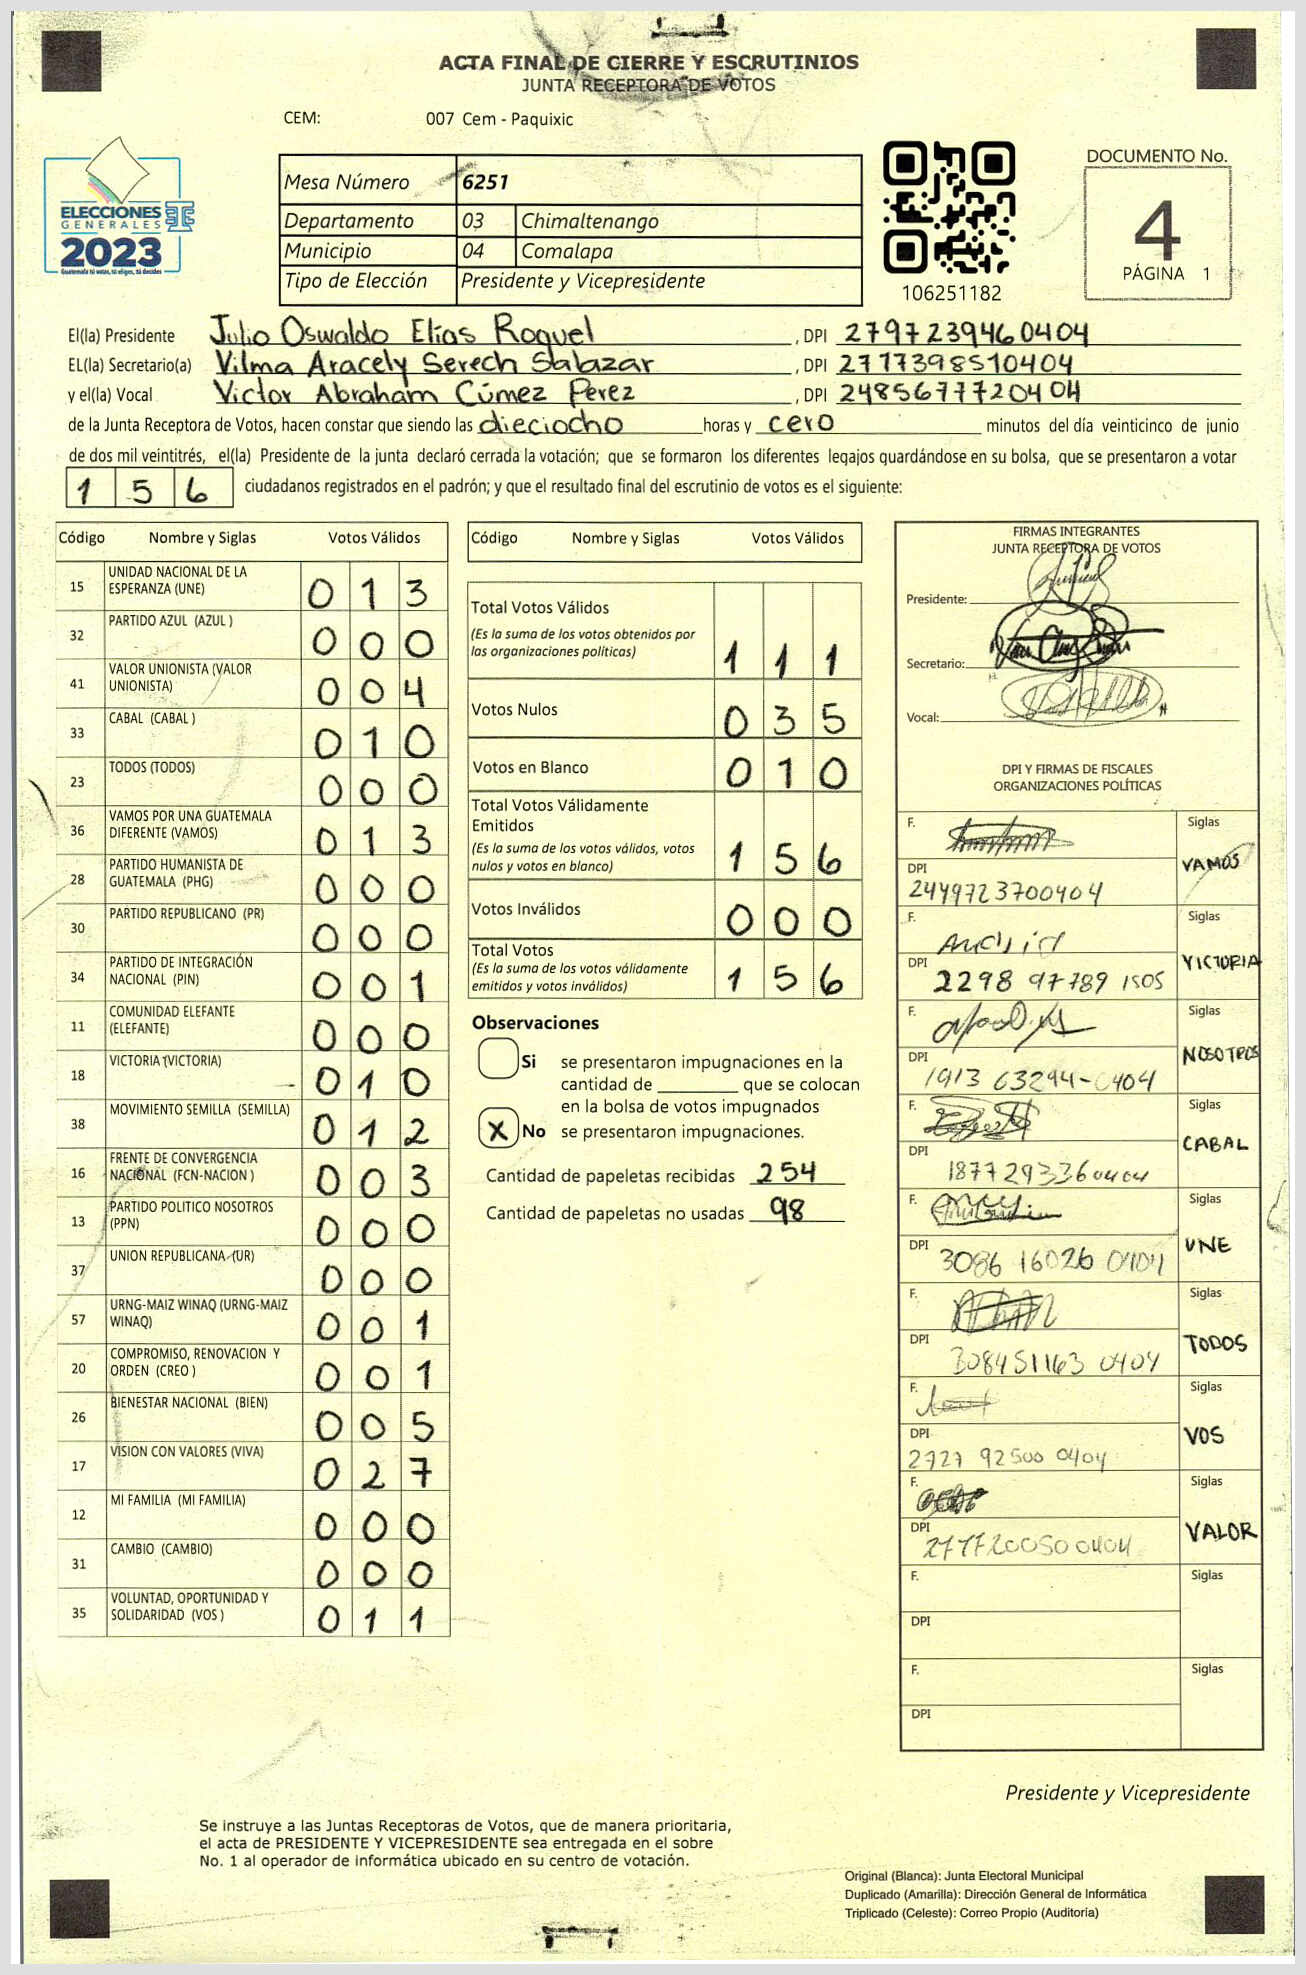 ACTA FINAL DE CIERRE Y ESCRUTINIOS
JUNTA RECEPTORA DE VOTOS
CEM: 007 Cem - Paquixic
ELECCIONES
GENERALES
2023
Guatemala tú votas, tú eliges, tú decides
Mesa Número 6251
Departamento 03 Chimaltenango
Municipio 04 Comalapa
Tipo de Elección Presidente y Vicepresidente
106251182
DOCUMENTO No.
4
PÁGINA 1
El(la) Presidente Julio Oswaldo Elías Roquel, DPI 2797239460404
EL(la) Secretario(a) Vilma Aracely Serech Salazar, DPI 2777398510404
y el(la) Vocal Victor Abraham Cúmez Perez, DPI 2485677720404
de la Junta Receptora de Votos, hacen constar que siendo las dieciocho horas y cero minutos del día veinticinco de junio
de dos mil veintitrés, el(la) Presidente de la junta declaró cerrada la votación; que se formaron los diferentes legajos guardándose en su bolsa, que se presentaron a votar
1 5 6 ciudadanos registrados en el padrón; y que el resultado final del escrutinio de votos es el siguiente:
Código Nombre y Siglas Votos Válidos
15 UNIDAD NACIONAL DE LA ESPERANZA (UNE) 0 1 3
32 PARTIDO AZUL (AZUL ) 0 0 0
41 VALOR UNIONISTA (VALOR UNIONISTA) 0 0 4
33 CABAL (CABAL ) 0 1 0
23 TODOS (TODOS) 0 0 0
36 VAMOS POR UNA GUATEMALA DIFERENTE (VAMOS) 0 1 3
28 PARTIDO HUMANISTA DE GUATEMALA (PHG) 0 0 0
30 PARTIDO REPUBLICANO (PR) 0 0 0
34 PARTIDO DE INTEGRACIÓN NACIONAL (PIN) 0 0 1
11 COMUNIDAD ELEFANTE (ELEFANTE) 0 0 0
18 VICTORIA (VICTORIA) 0 1 0
38 MOVIMIENTO SEMILLA (SEMILLA) 0 1 2
16 FRENTE DE CONVERGENCIA NACIONAL (FCN-NACION ) 0 0 3
13 PARTIDO POLITICO NOSOTROS (PPN) 0 0 0
37 UNION REPUBLICANA (UR) 0 0 0
57 URNG-MAIZ WINAQ (URNG-MAIZ WINAQ) 0 0 1
20 COMPROMISO, RENOVACION Y ORDEN (CREO ) 0 0 1
26 BIENESTAR NACIONAL (BIEN) 0 0 5
17 VISION CON VALORES (VIVA) 0 2 7
12 MI FAMILIA (MI FAMILIA) 0 0 0
31 CAMBIO (CAMBIO) 0 0 0
35 VOLUNTAD, OPORTUNIDAD Y SOLIDARIDAD (VOS ) 0 1 1
Código Nombre y Siglas Votos Válidos
Total Votos Válidos
(Es la suma de los votos obtenidos por
las organizaciones políticas) 1 1 1
Votos Nulos 0 3 5
Votos en Blanco 0 1 0
Total Votos Válidamente
Emitidos
(Es la suma de los votos válidos, votos
nulos y votos en blanco) 1 5 6
Votos Inválidos 0 0 0
Total Votos
(Es la suma de los votos válidamente
emitidos y votos inválidos) 1 5 6
Observaciones
Si se presentaron impugnaciones en la
cantidad de ________ que se colocan
en la bolsa de votos impugnados
X No se presentaron impugnaciones.
Cantidad de papeletas recibidas 254
Cantidad de papeletas no usadas 98
FIRMAS INTEGRANTES
JUNTA RECEPTORA DE VOTOS
Presidente:
Secretario:
Vocal:
DPI Y FIRMAS DE FISCALES
ORGANIZACIONES POLÍTICAS
F. Siglas
VAMOS
DPI
2449723700404
F. Siglas
VICTORIA
DPI
2298 97789 1505
F. Siglas
NOSOTROS
DPI
1913 63294-0404
F. Siglas
CABAL
DPI
1877293360404
F. Siglas
UNE
DPI
3086 16026 0404
F. Siglas
TODOS
DPI
308451163 0404
F. Siglas
VOS
DPI
2727 92500 0404
F. Siglas
VALOR
DPI
2777200500404
F. Siglas
DPI
F. Siglas
DPI
Presidente y Vicepresidente
Se instruye a las Juntas Receptoras de Votos, que de manera prioritaria,
el acta de PRESIDENTE Y VICEPRESIDENTE sea entregada en el sobre
No. 1 al operador de informática ubicado en su centro de votación.
Original (Blanca): Junta Electoral Municipal
Duplicado (Amarilla): Dirección General de Informática
Triplicado (Celeste): Correo Propio (Auditoría)